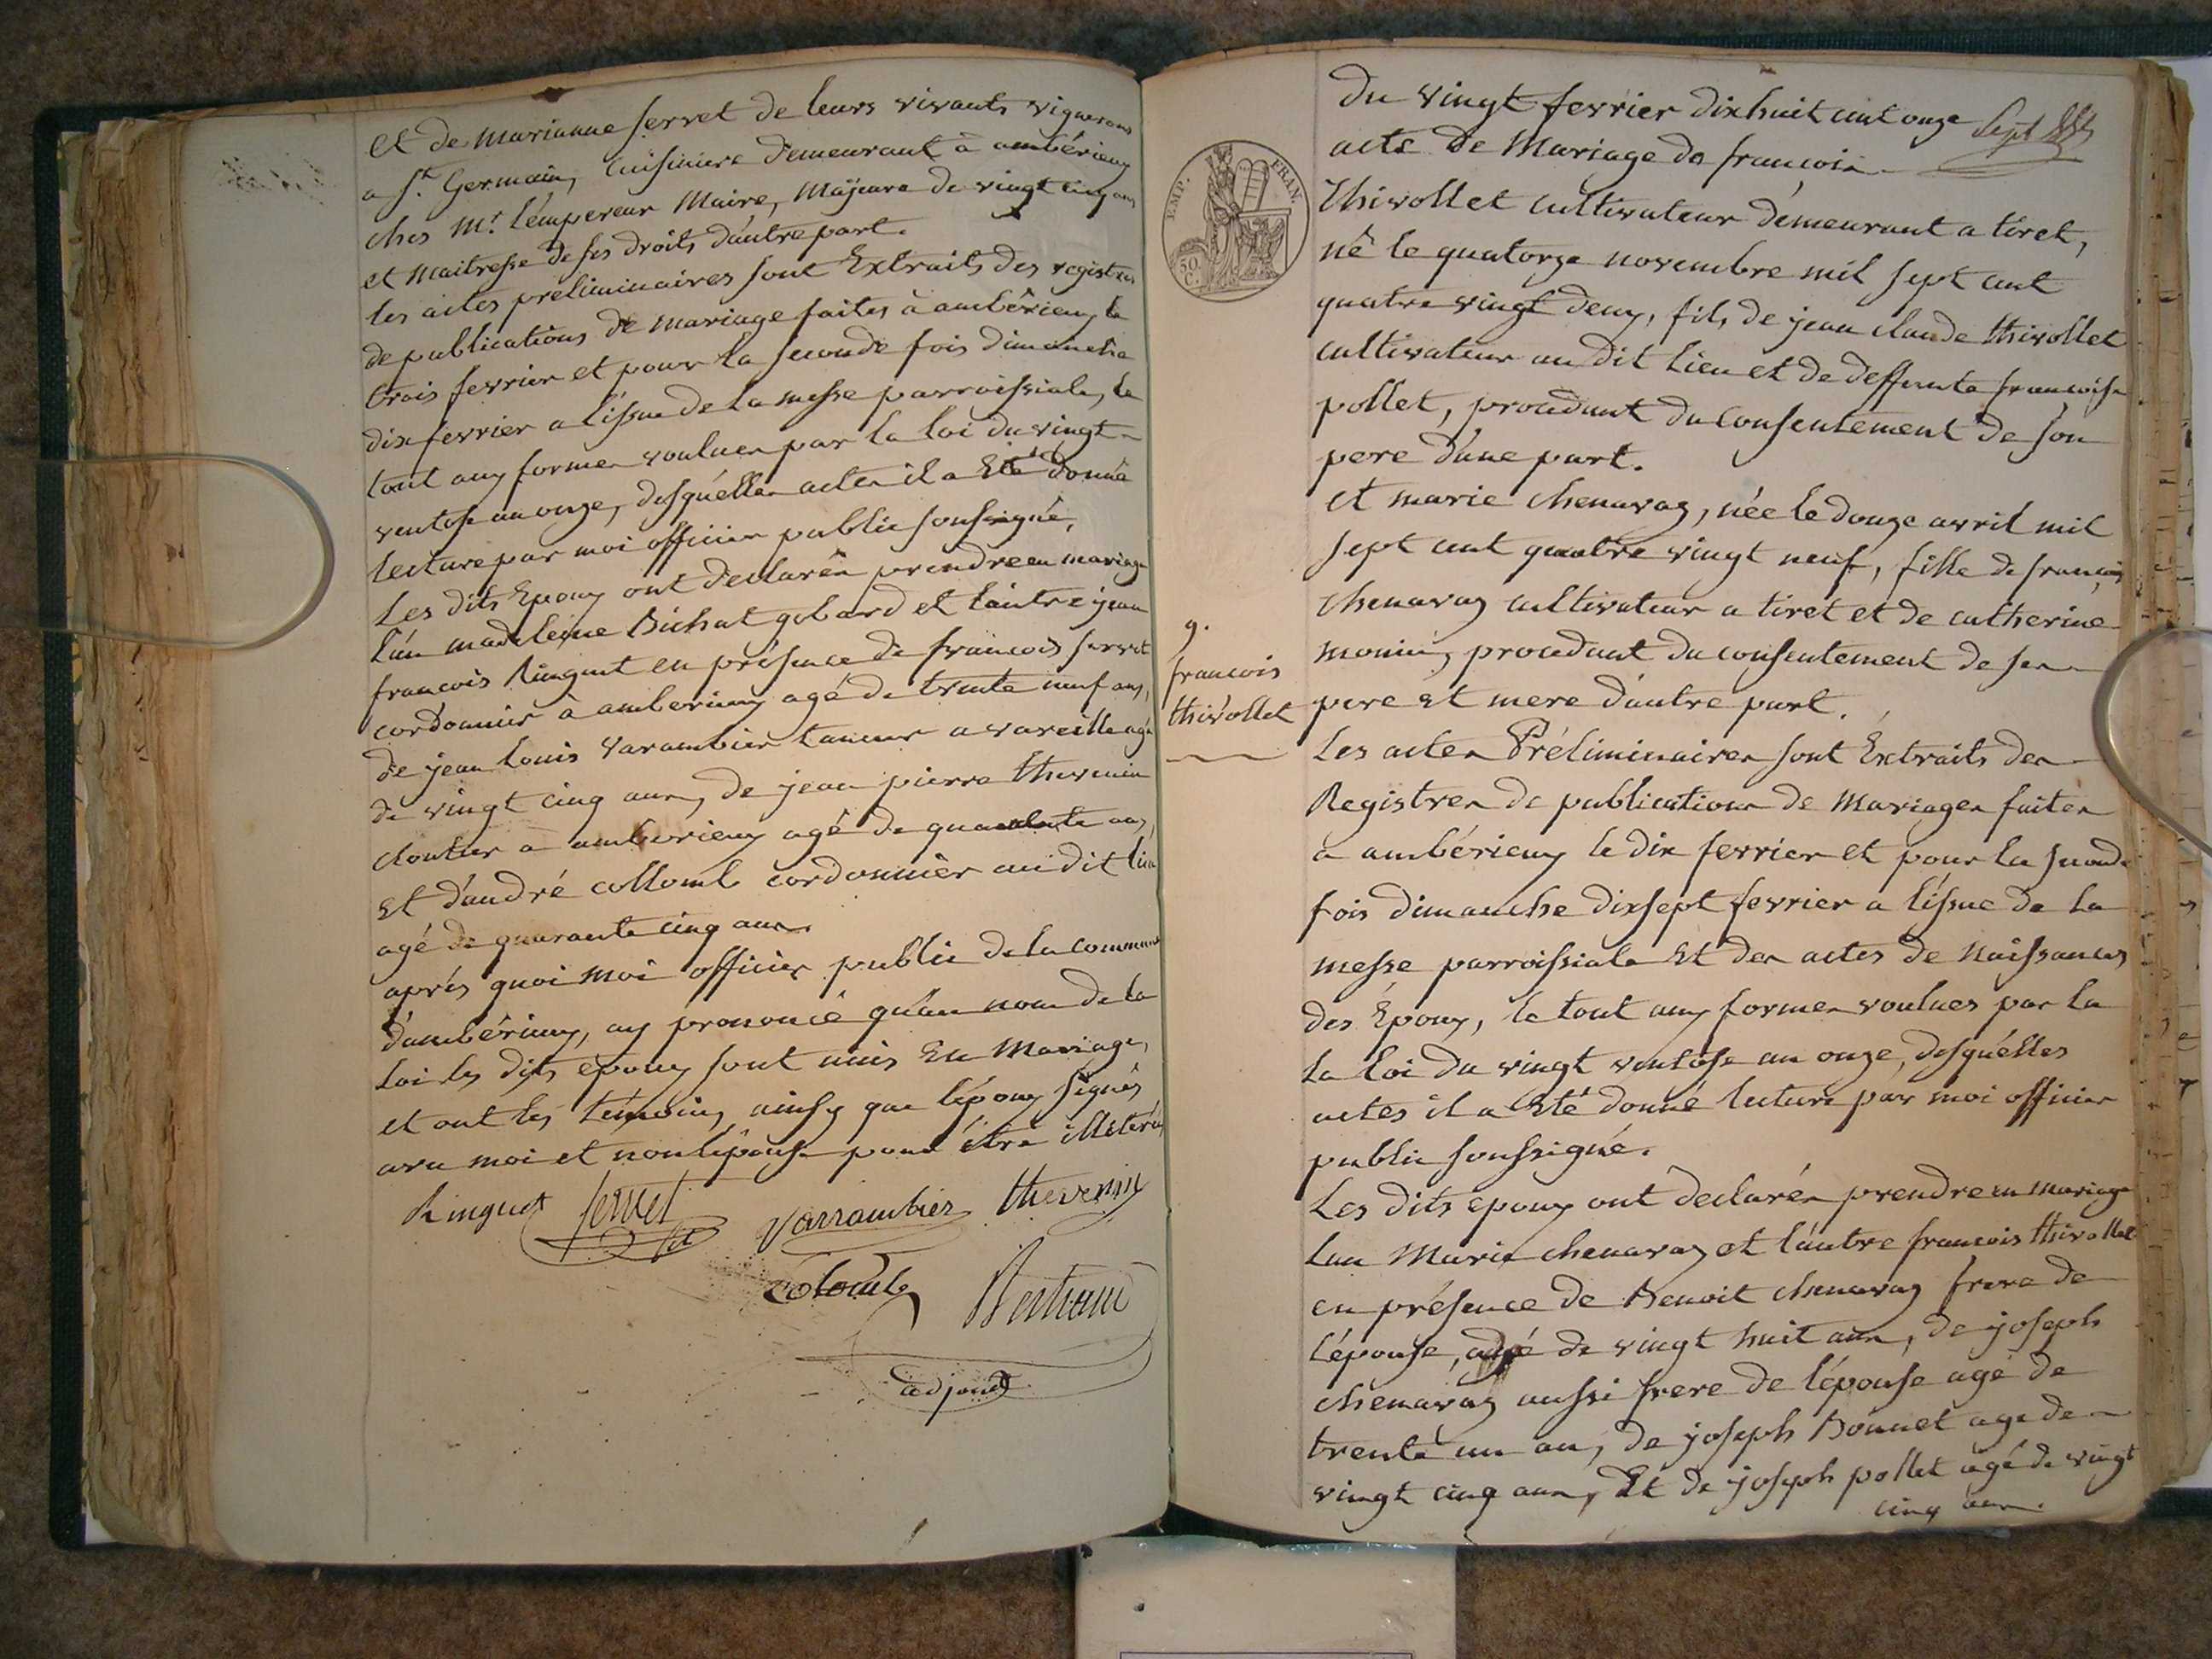 et de Marianne servet de leurs vivants vignerons
a St. Germain, Cuisiniere demeurant à ambérieux
ches Mr. l'empereur Maire, Majeure de vingt cinq ans
et maitresse de ses droits d'autre part.
les actes preliminaires sont Extraits des registres
de publications de mariage faites à ambérieux le
trois fevrier et pour la seconde fois dimanche
dix fevrier a l'issue de la messe parroissiale, le
tout aux formes voulues par la loi du vingt
ventose an onze, desquelles actes il a Eté donné
lecture par moi officier public soussigné,
Les dits Epoux ont declarés prendre en mariage
l'un madeleine Bichat gobard et l'autre jean
francois Ringuet en présence de francois servet
cordonnier à amberieux agé de trente neuf ans,
de jean louis Varambier taneur a vareille agé
de vingt cinq ans, de jean pierre thevenin
cloutier a amberieux agé de quarante ans,
et d'andré collomb cordonnier au dit lieu
agé de quarante cinq ans.
aprés quoi moi officier public de la commune
d'ambérieux, ay prononcé qu'au nom de la
Loi les dits epoux sont unis En Mariage,
et ont les témoins, ainsy que l'époux signés
avec moi et non l'épouse pour être illetérée
Ringuet servet Varrambier thevenin
Colomb Bertrand
adjoint
Du vingt fevrier dix huit cent onze Sept
acte de Mariage de francois
Thivollet cultivateur demeurant a tiret,
né le quatorze novembre mil sept cent
quatre vingt deux, fils de jean claude thivollet
cultivateur au dit lieu et de deffunte francoise
pollet, procedant du Consentement de son
pere d'une part.
et marie chenavaz, née le douze avril mil
sept cent quatre vingt neuf, fille de francois
chenavaz cultivateur a tiret et de catherine
monin, procedant du consentement de ses
pere et mere d'autre part.
Les actes Préliminaires sont Extraits des
Registres de publications de Mariages faites
a ambérieux le dix fevrier et pour la seconde
fois dimanche dix sept fevrier a l'issue de la
messe parroissiale et des actes de naissances
des Epoux, le tout aux formes voulues par la
la loi du vingt ventose an onze, desquelles
actes il a Eté donné lecture par moi officier
public soussigné.
Les dits epoux ont declarés prendre en mariage
l'un Marie chenavaz et l'autre francois thivollet
en présence de Benoit chenavaz frere de
l'épouse, agé de vingt huit ans, de joseph
chenavaz aussi frere de l'épouse agé de
trente un an, de joseph Bonnet agé de
vingt cinq ans, Et de joseph pollet agé de vingt
cinq ans.
9.
francois
thivollet
EMP. FRAN.
50
C.